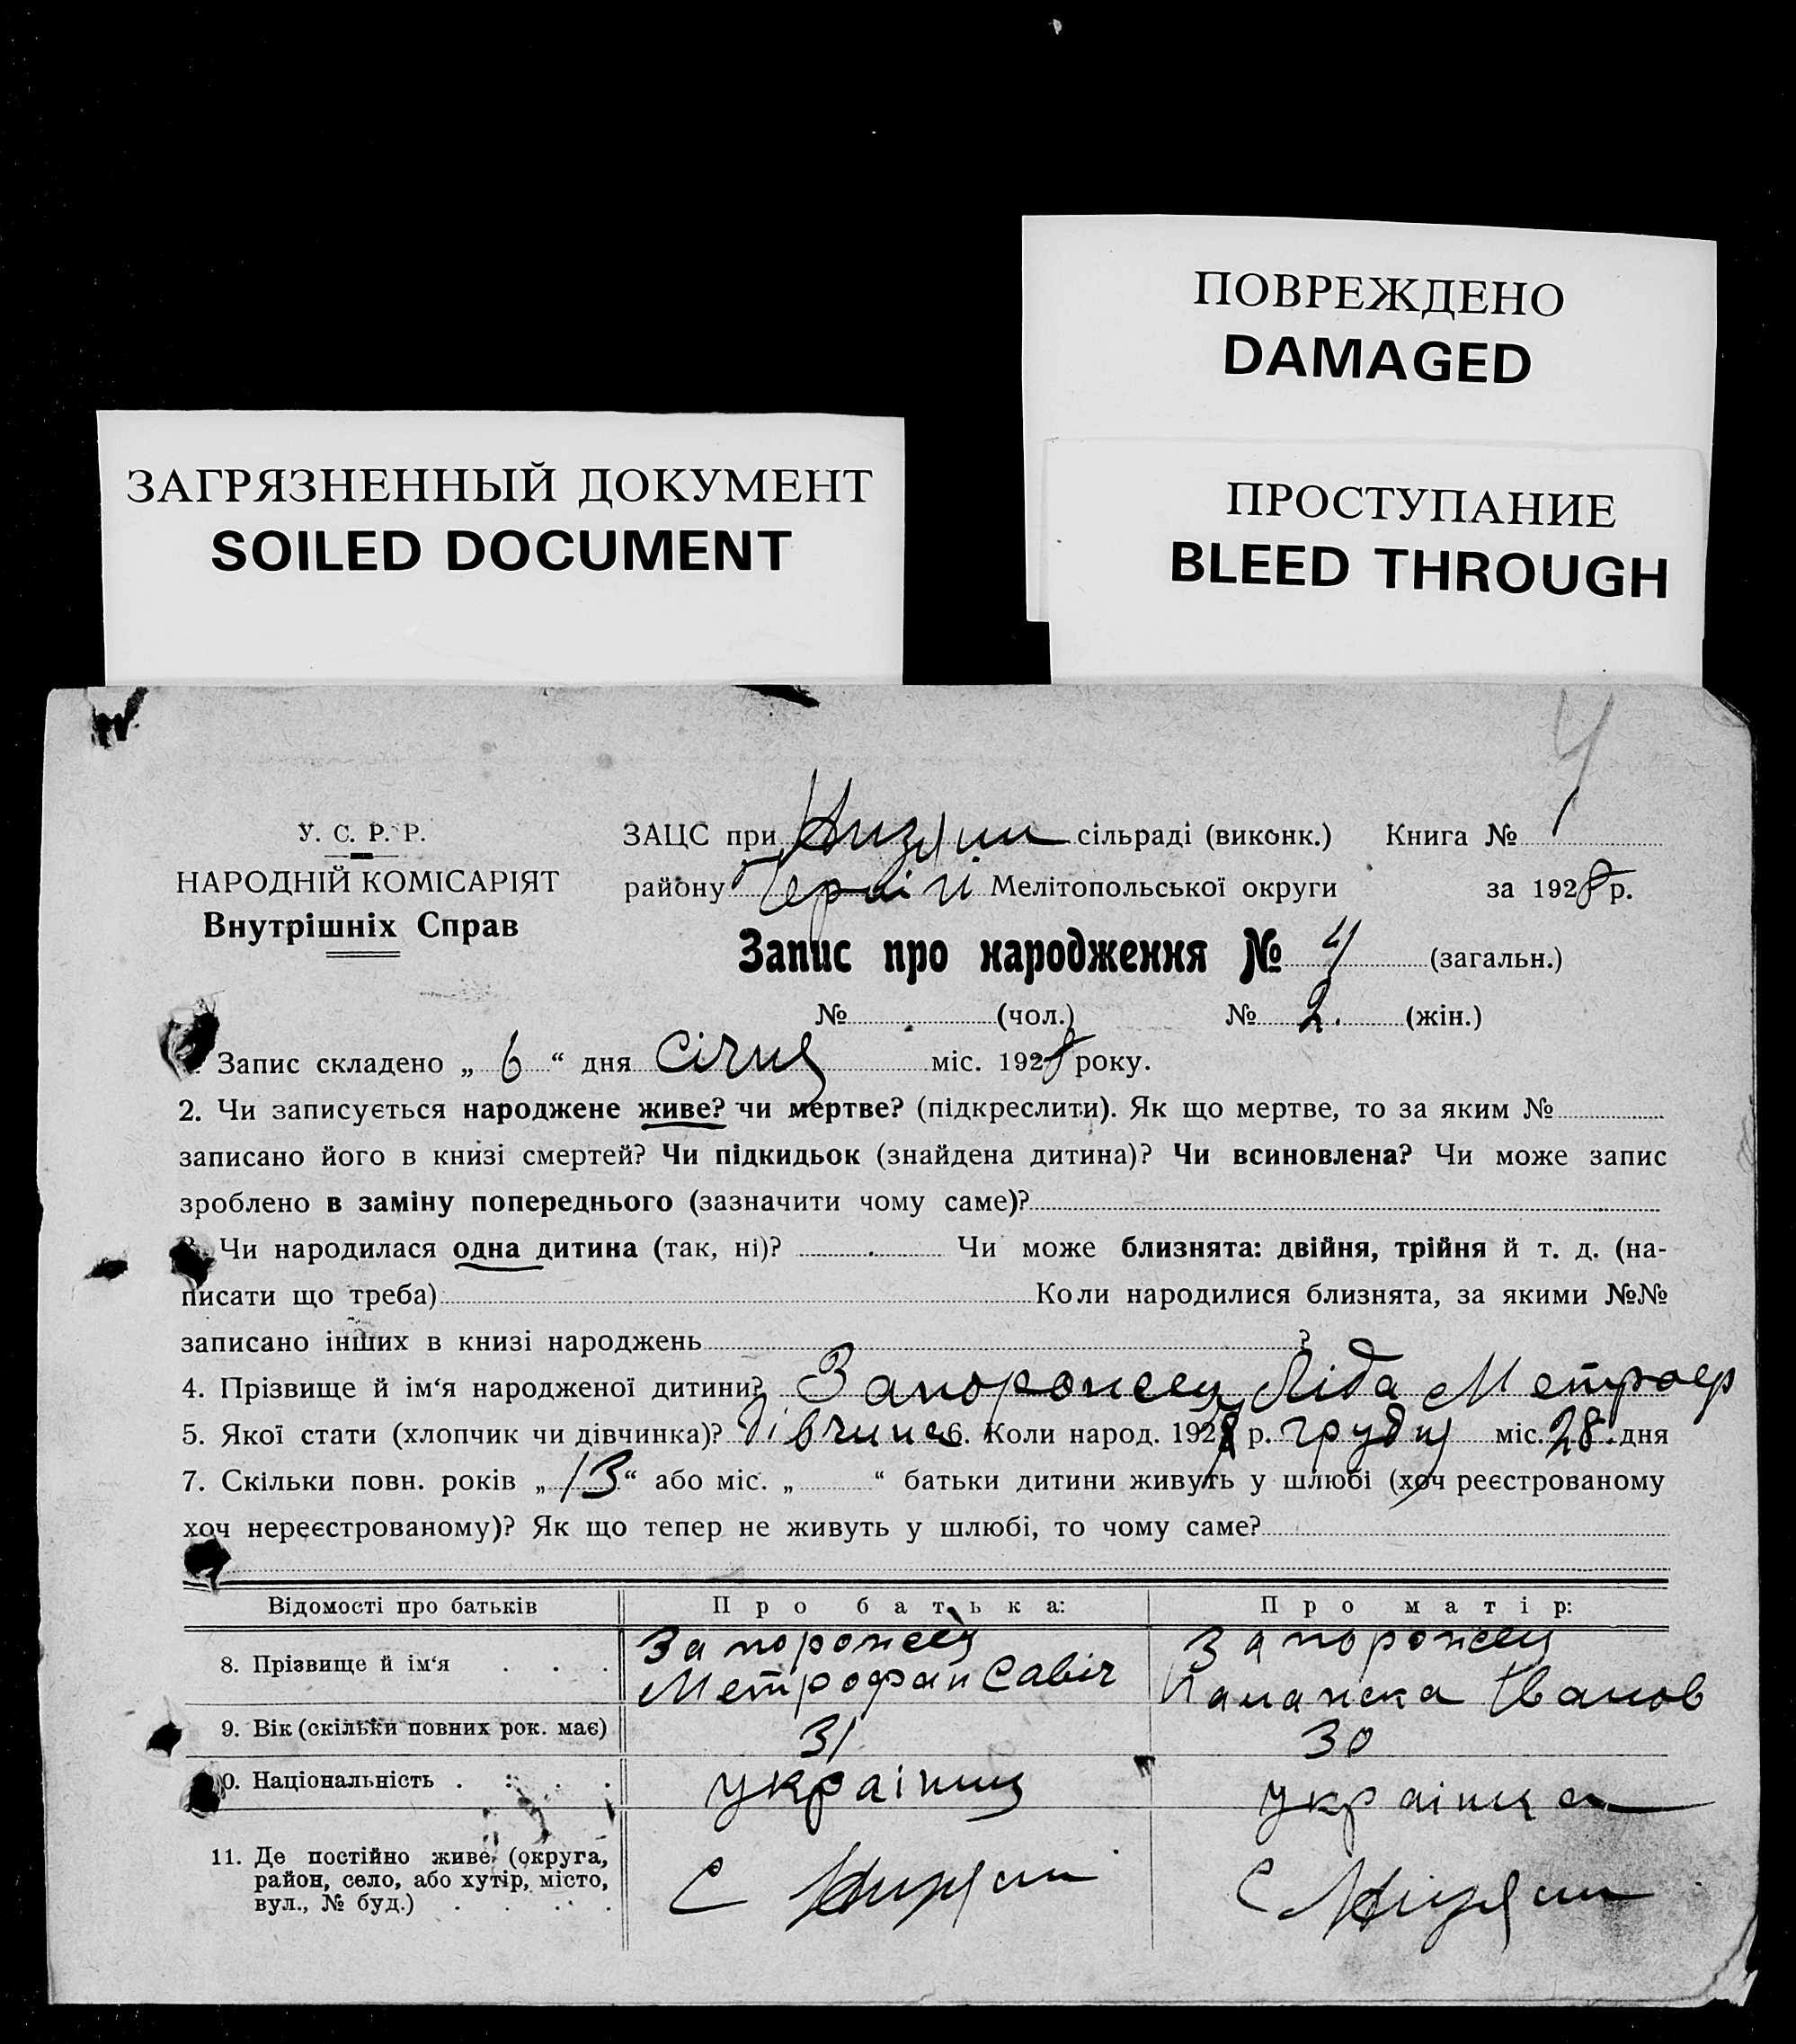 ПОВРЕЖДЕНО
DAMAGED
ЗАГРЯЗНЕННЫЙ ДОКУМЕНТ
SOILED DOCUMENT
ПРОСТУПАНИЕ
BLEED THROUGH
4
У. С. Р. Р.
НАРОДНІЙ КОМІСАРІЯТ
Внутрішніх Справ
ЗАЦС при сільраді (виконк.) Книга № 1
району Мелітопольської округи за 1928 р.
Запис про народження № 4 (загальн.)
№ (чол.) № 2. (жін.)
Запис складено „ 6 “ дня Січня міс. 1928 року.
2. Чи записується народжене живе? чи мертве? (підкреслити). Як що мертве, то за яким №
записано його в книзі смертей? Чи підкидьок (знайдена дитина)? Чи всиновлена? Чи може запис
зроблено в заміну попереднього (зазначити чому саме)?
Чи народилася одна дитина (так, ні)? Чи може близнята: двійня, трійня й т. д. (на-
писати що треба) Коли народилися близнята, за якими №№
записано інших в книзі народжень ?
4. Прізвище й ім‘я народженої дитини? Запорожец Ліда Метроф
5. Якої стати (хлопчик чи дівчинка)? дівчина 6. Коли народ. 192 р. грудня міс. 28. дня
7. Скільки повн. років „ 13 “ або міс. „ “ батьки дитини живуть у шлюбі (хоч реєстрованому
хоч нереєстрованому)? Як що тепер не живуть у шлюбі, то чому саме?
Відомості про батьків Про батька: Про матір:
8. Прізвище й ім‘я . . . Запорожец Метрофан Савіч Запорожец Иванов
9. Вік (скільки повних рок. має) 31 30
10. Національність . . . . українец українка
11. Де постійно живе (округа, район, село, або хутір, місто, вул., № буд.) . . . . С С